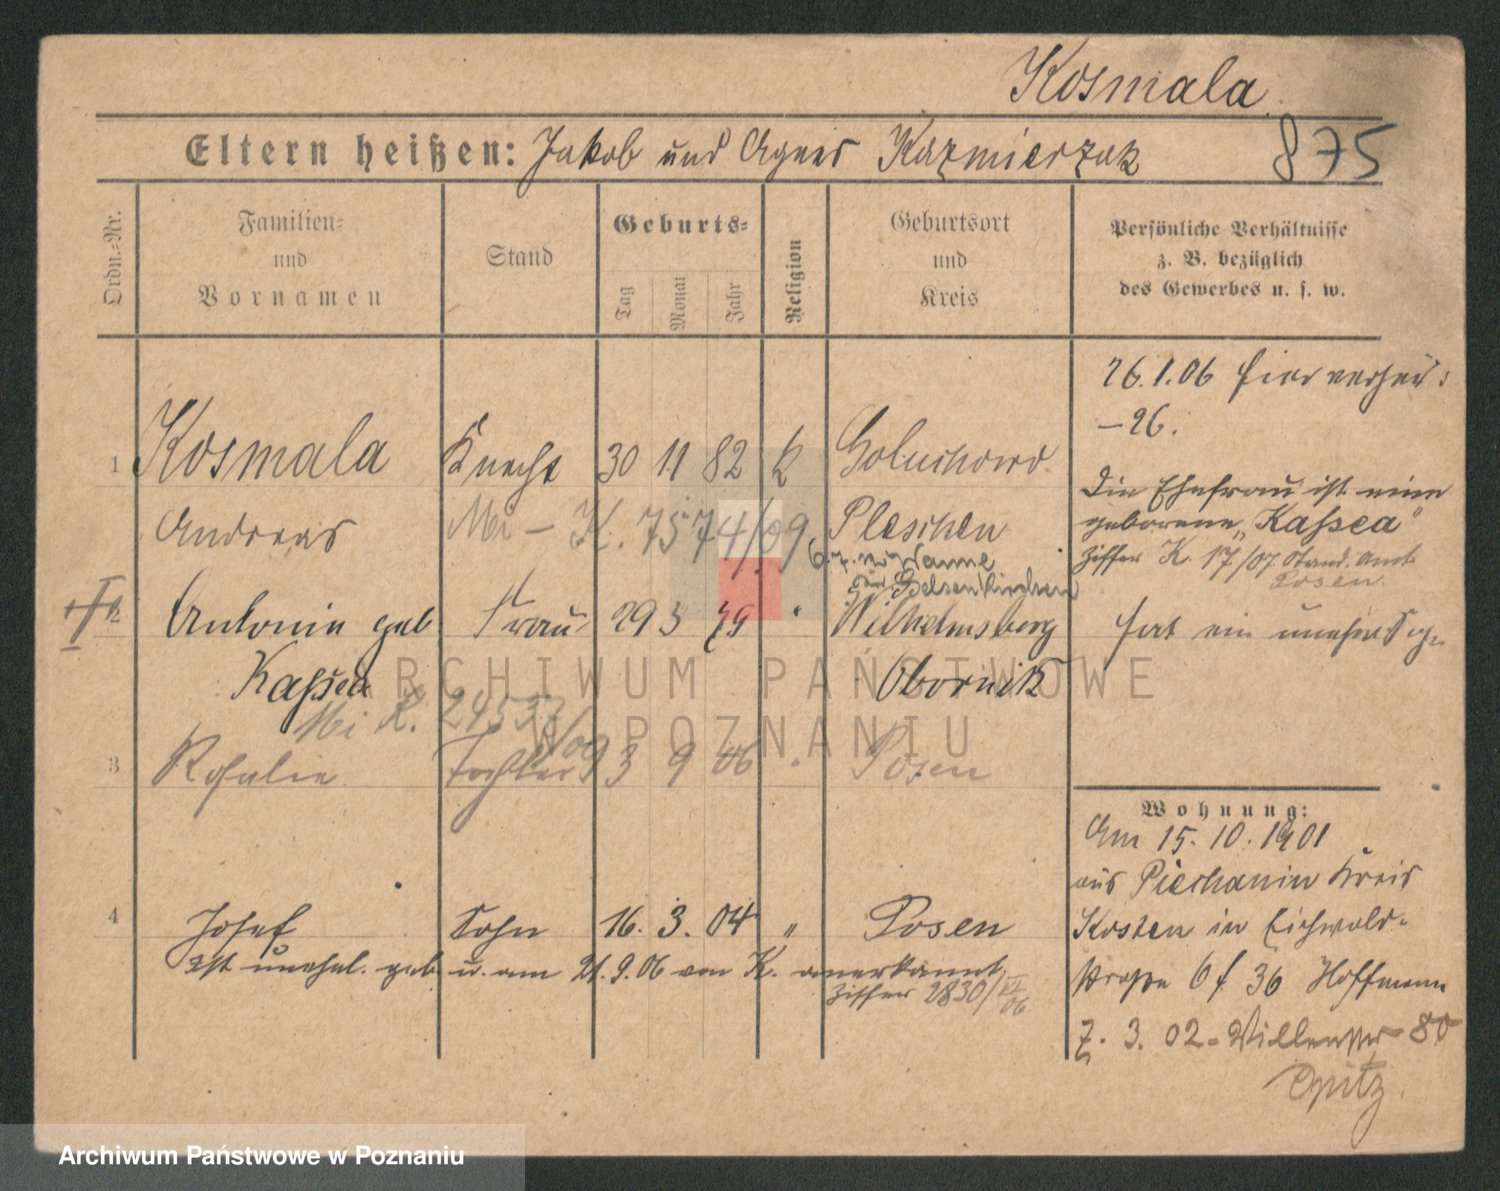 Kosmala
875
Eltern heißen: Jakob und Agnes Kazmierzak
Ordn.-Nr.
Familien-
und
Vornamen
Stand
Geburts-
Tag
Monat
Jahr
Religion
Geburtsort
und
Kreis
Persönliche Verhältnisse
z. B. bezüglich
des Gewerbes u. s. w.
26.1.06 hier verhei:
-26.
1 Kosmala Knecht 30 11 82 k Goluchowo
Andreas Pleschen
Mi - K. 7574/09
Die Ehefrau ist eine
geborene „Kassea"
Ziffer K. 17/07 Stand. Amt
Posen.
Wanne
Gelsenkirchen
2 Antonie geb Frau 29 3 79 " Wilhelmsberg
Kassea Obornik
hat ein
Mi K. 24557/09
3 Rosalie Tochter 3 9 06 " Posen
4 Josef Sohn 16. 3. 04 " Posen
Ist unehel. geb u. am 21.9.06 von K. anerkannt
Ziffer 2830/VI 06
Wohnung:
Am 15.10.1901
aus Piechanin Kreis
Kosten in Eichwald-
straße 6 f 36 Hoffmann
7. 3. 02 - 80
Opitz.
ARCHIWUM PAŃSTWOWE
W POZNANIU
Archiwum Państwowe w Poznaniu